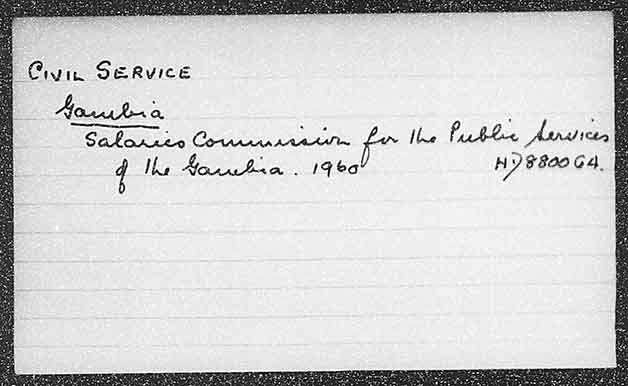 CIVIL SERVICE
Gambia
Salaries Commission for the Public Services
of the Gambia. 1960 HD8800G4.